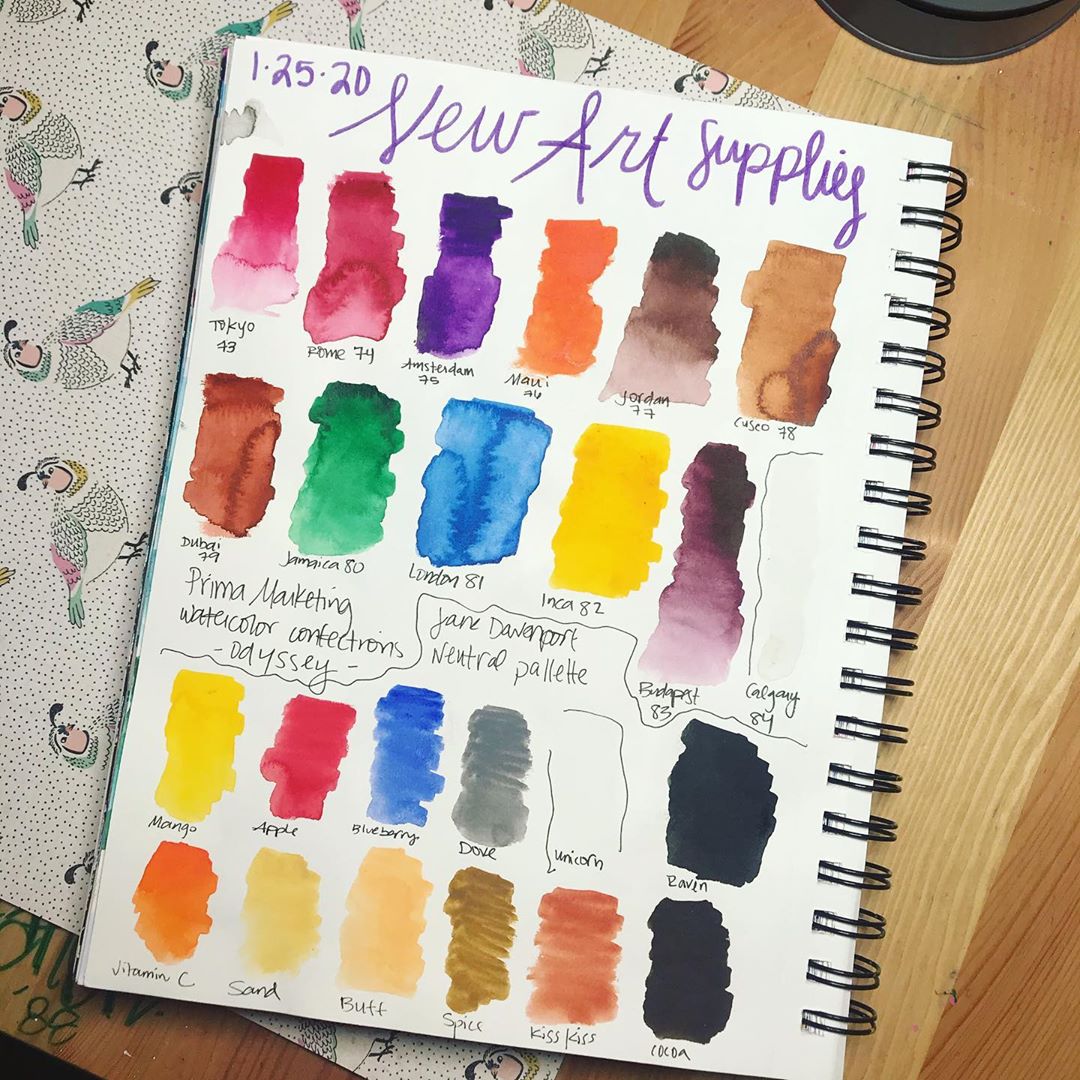 1·25·20 New Art Supplies
Tokyo
73
Rome 74
Amsterdam
75
Maui
76
Jordan
77
Cusco 78
Dubai
79
Jamaica 80
London 81
Inca 82
Budapest
83
Calgary
84
Prima Marketing
watercolor confections
- odyssey -
Jane Davenport
Neutral pallette
Mango
Apple
Blueberry
Dove
Unicorn
Raven
Vitamin C
Sand
Buff
Spice
Kiss/kiss
Cocoa
88